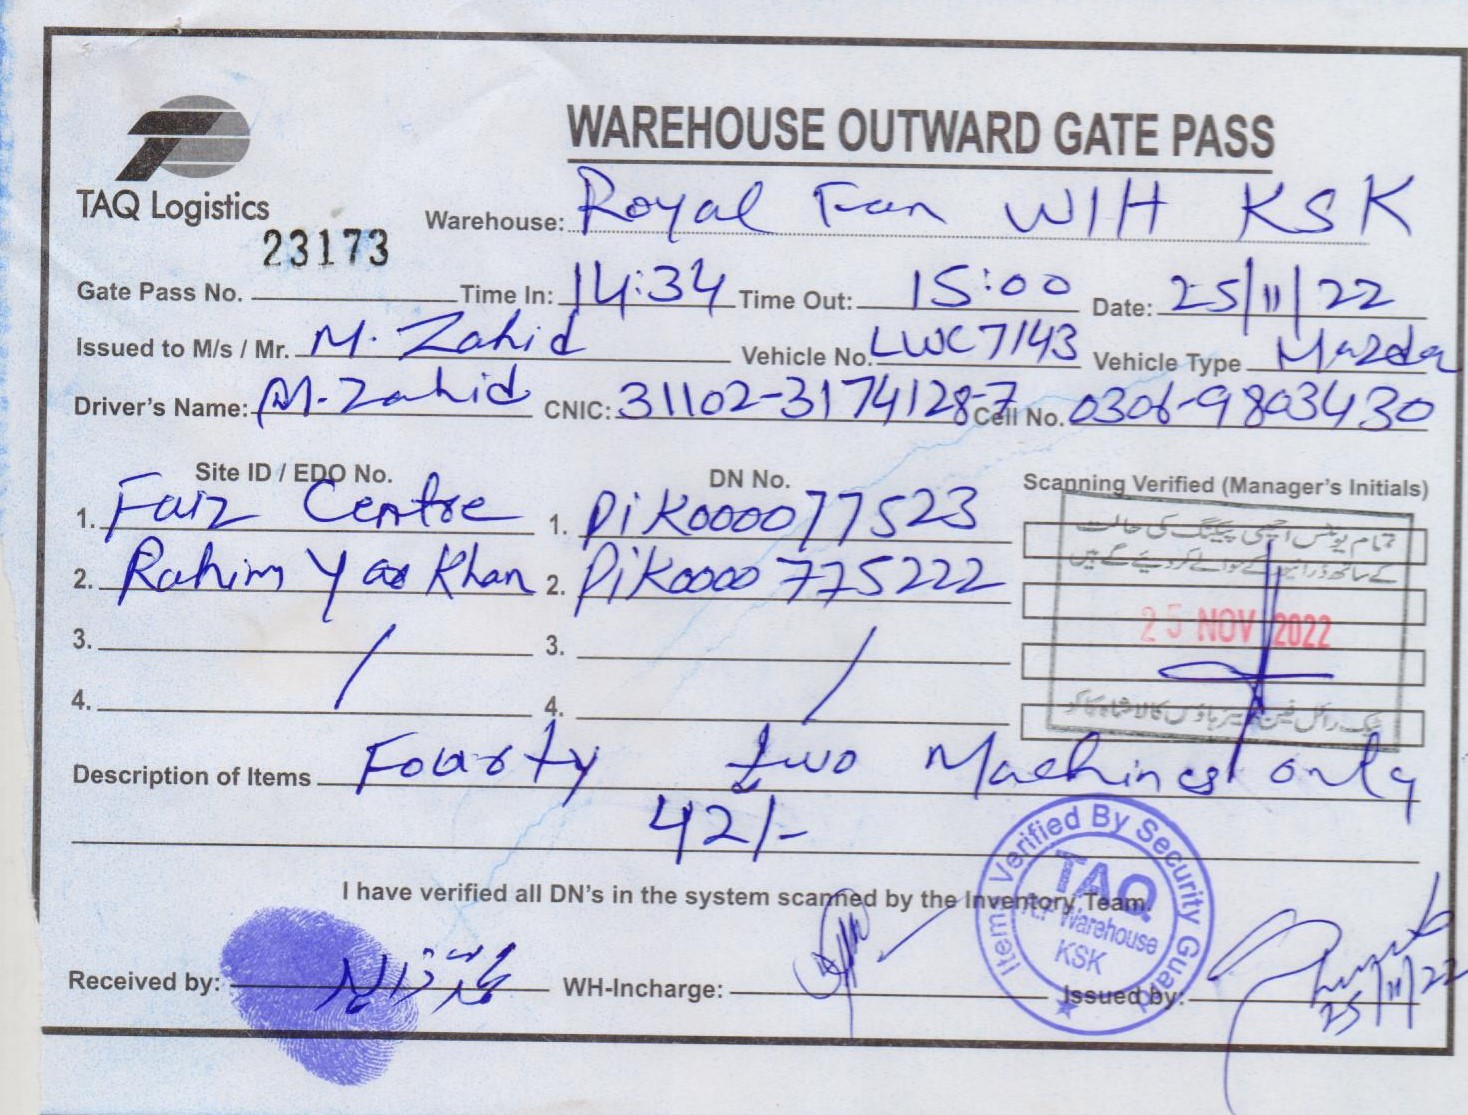 WAREHOUSE OUTWARD GATE PASS
TAQ Logistics
Warehouse: Royal Fan W/H KSK
23173
Gate Pass No. Time In: 14:34 Time Out: 15:00 Date: 25/11/22
Issued to M/s / Mr. M. Zahid Vehicle No. LWC7143 Vehicle Type Mazda
Driver's Name: M. Zahid CNIC: 31102-3174128-7 Cell No. 0306-9803430
Site ID / EDO No. DN No. Scanning Verified (Manager's Initials)
1. Faiz Centre 1. PiK000077523
2. Rahim Yar Khan 2. PiK0000775222
تمام یونٹس اچھی پیکنگ کی حالت
کے ساتھ ڈرائیور کے حوالے کر دیئے گئے ہیں
25 NOV 2022
3. / 3. /
4. 4.
Description of Items Fourty two Machines only
42/-
I have verified all DN's in the system scanned by the Inventory Team.
Item Verified By Security Guard
TAQ
R.F Warehouse
KSK
Received by: WH-Incharge: Issued by:
25/11/22